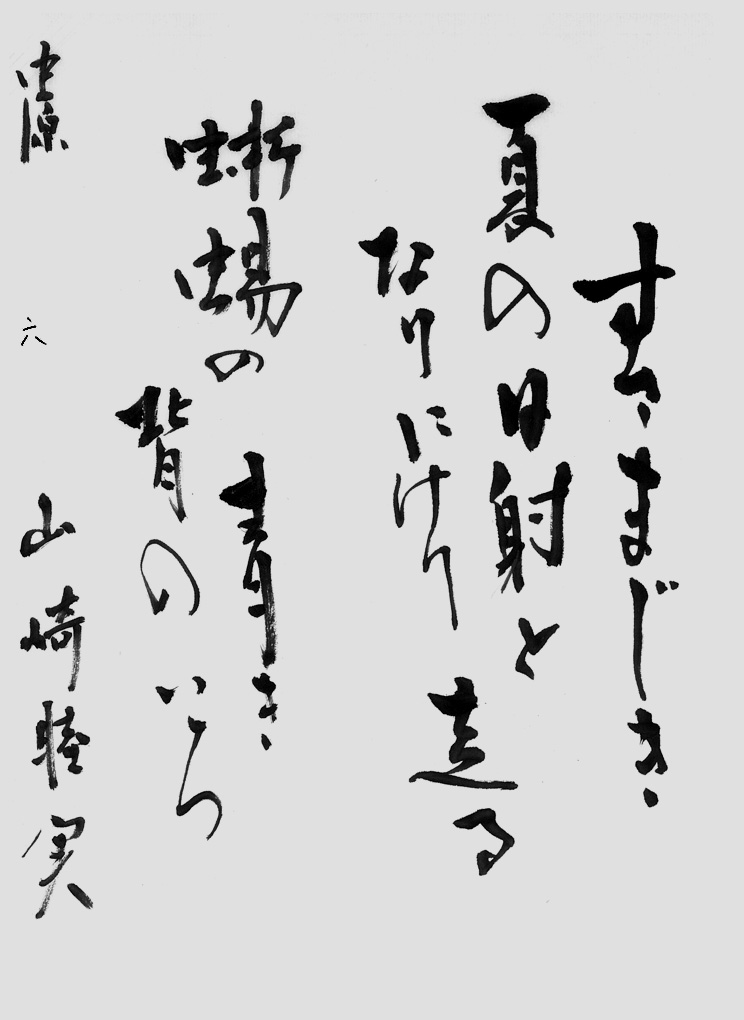 すさまじき
夏の日射と
なりにけり
走る
蜥蜴の
青き
背のいろ
六 山崎睦実